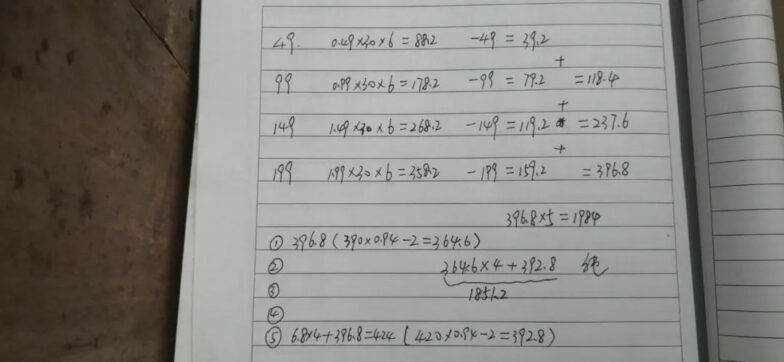 49. 0.49×30×6=88.2 -49=39.2
+
99 0.99×30×6=178.2 -99=79.2 =118.4
+
149 1.49×30×6=268.2 -149=119.2 =237.6
+
199 1.99×30×6=358.2 -199=159.2 =396.8
396.8×5=1984
① 396.8(390×0.94-2=364.6)
② 364.6×4+392.8 纯
③ 1851.2
④
⑤ 6.8×4+396.8=424(420×0.94-2=392.8)